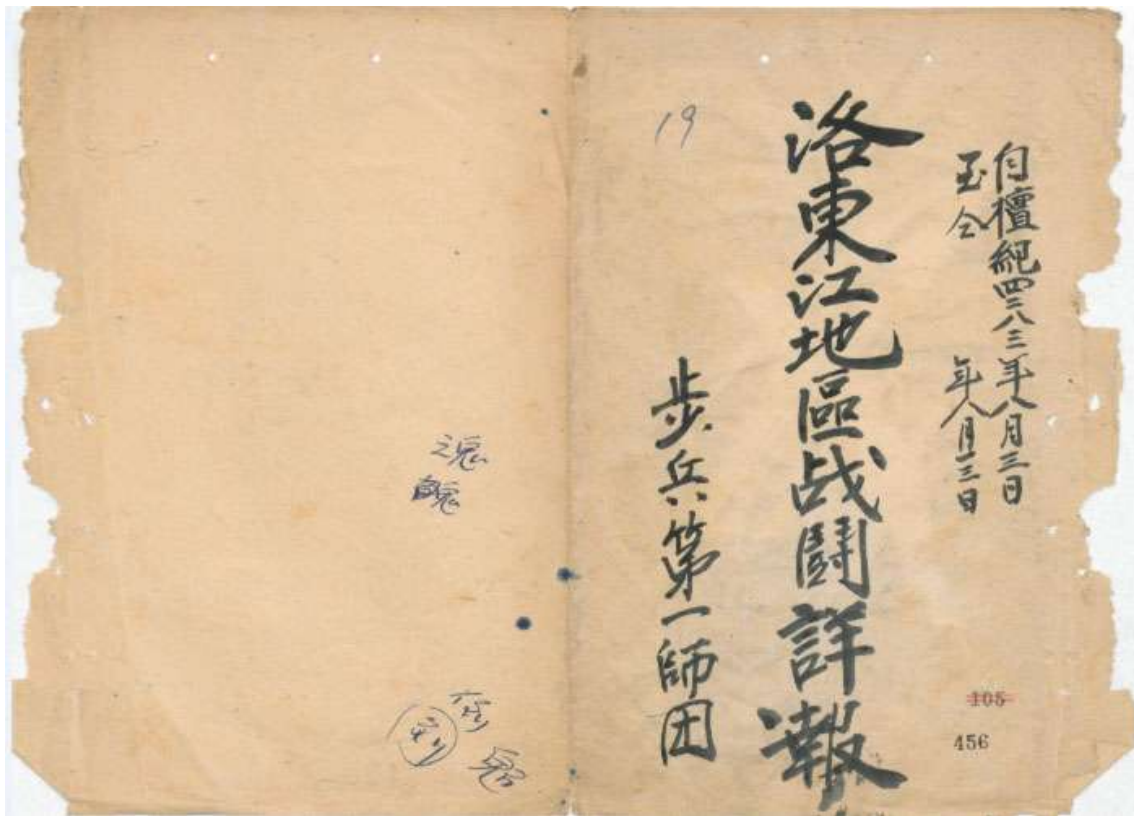 自檀紀四二八三年八月三日
至仝　　　年八月十三日
洛東江地區战鬪詳報
步兵第一師団
19
105
456
魂